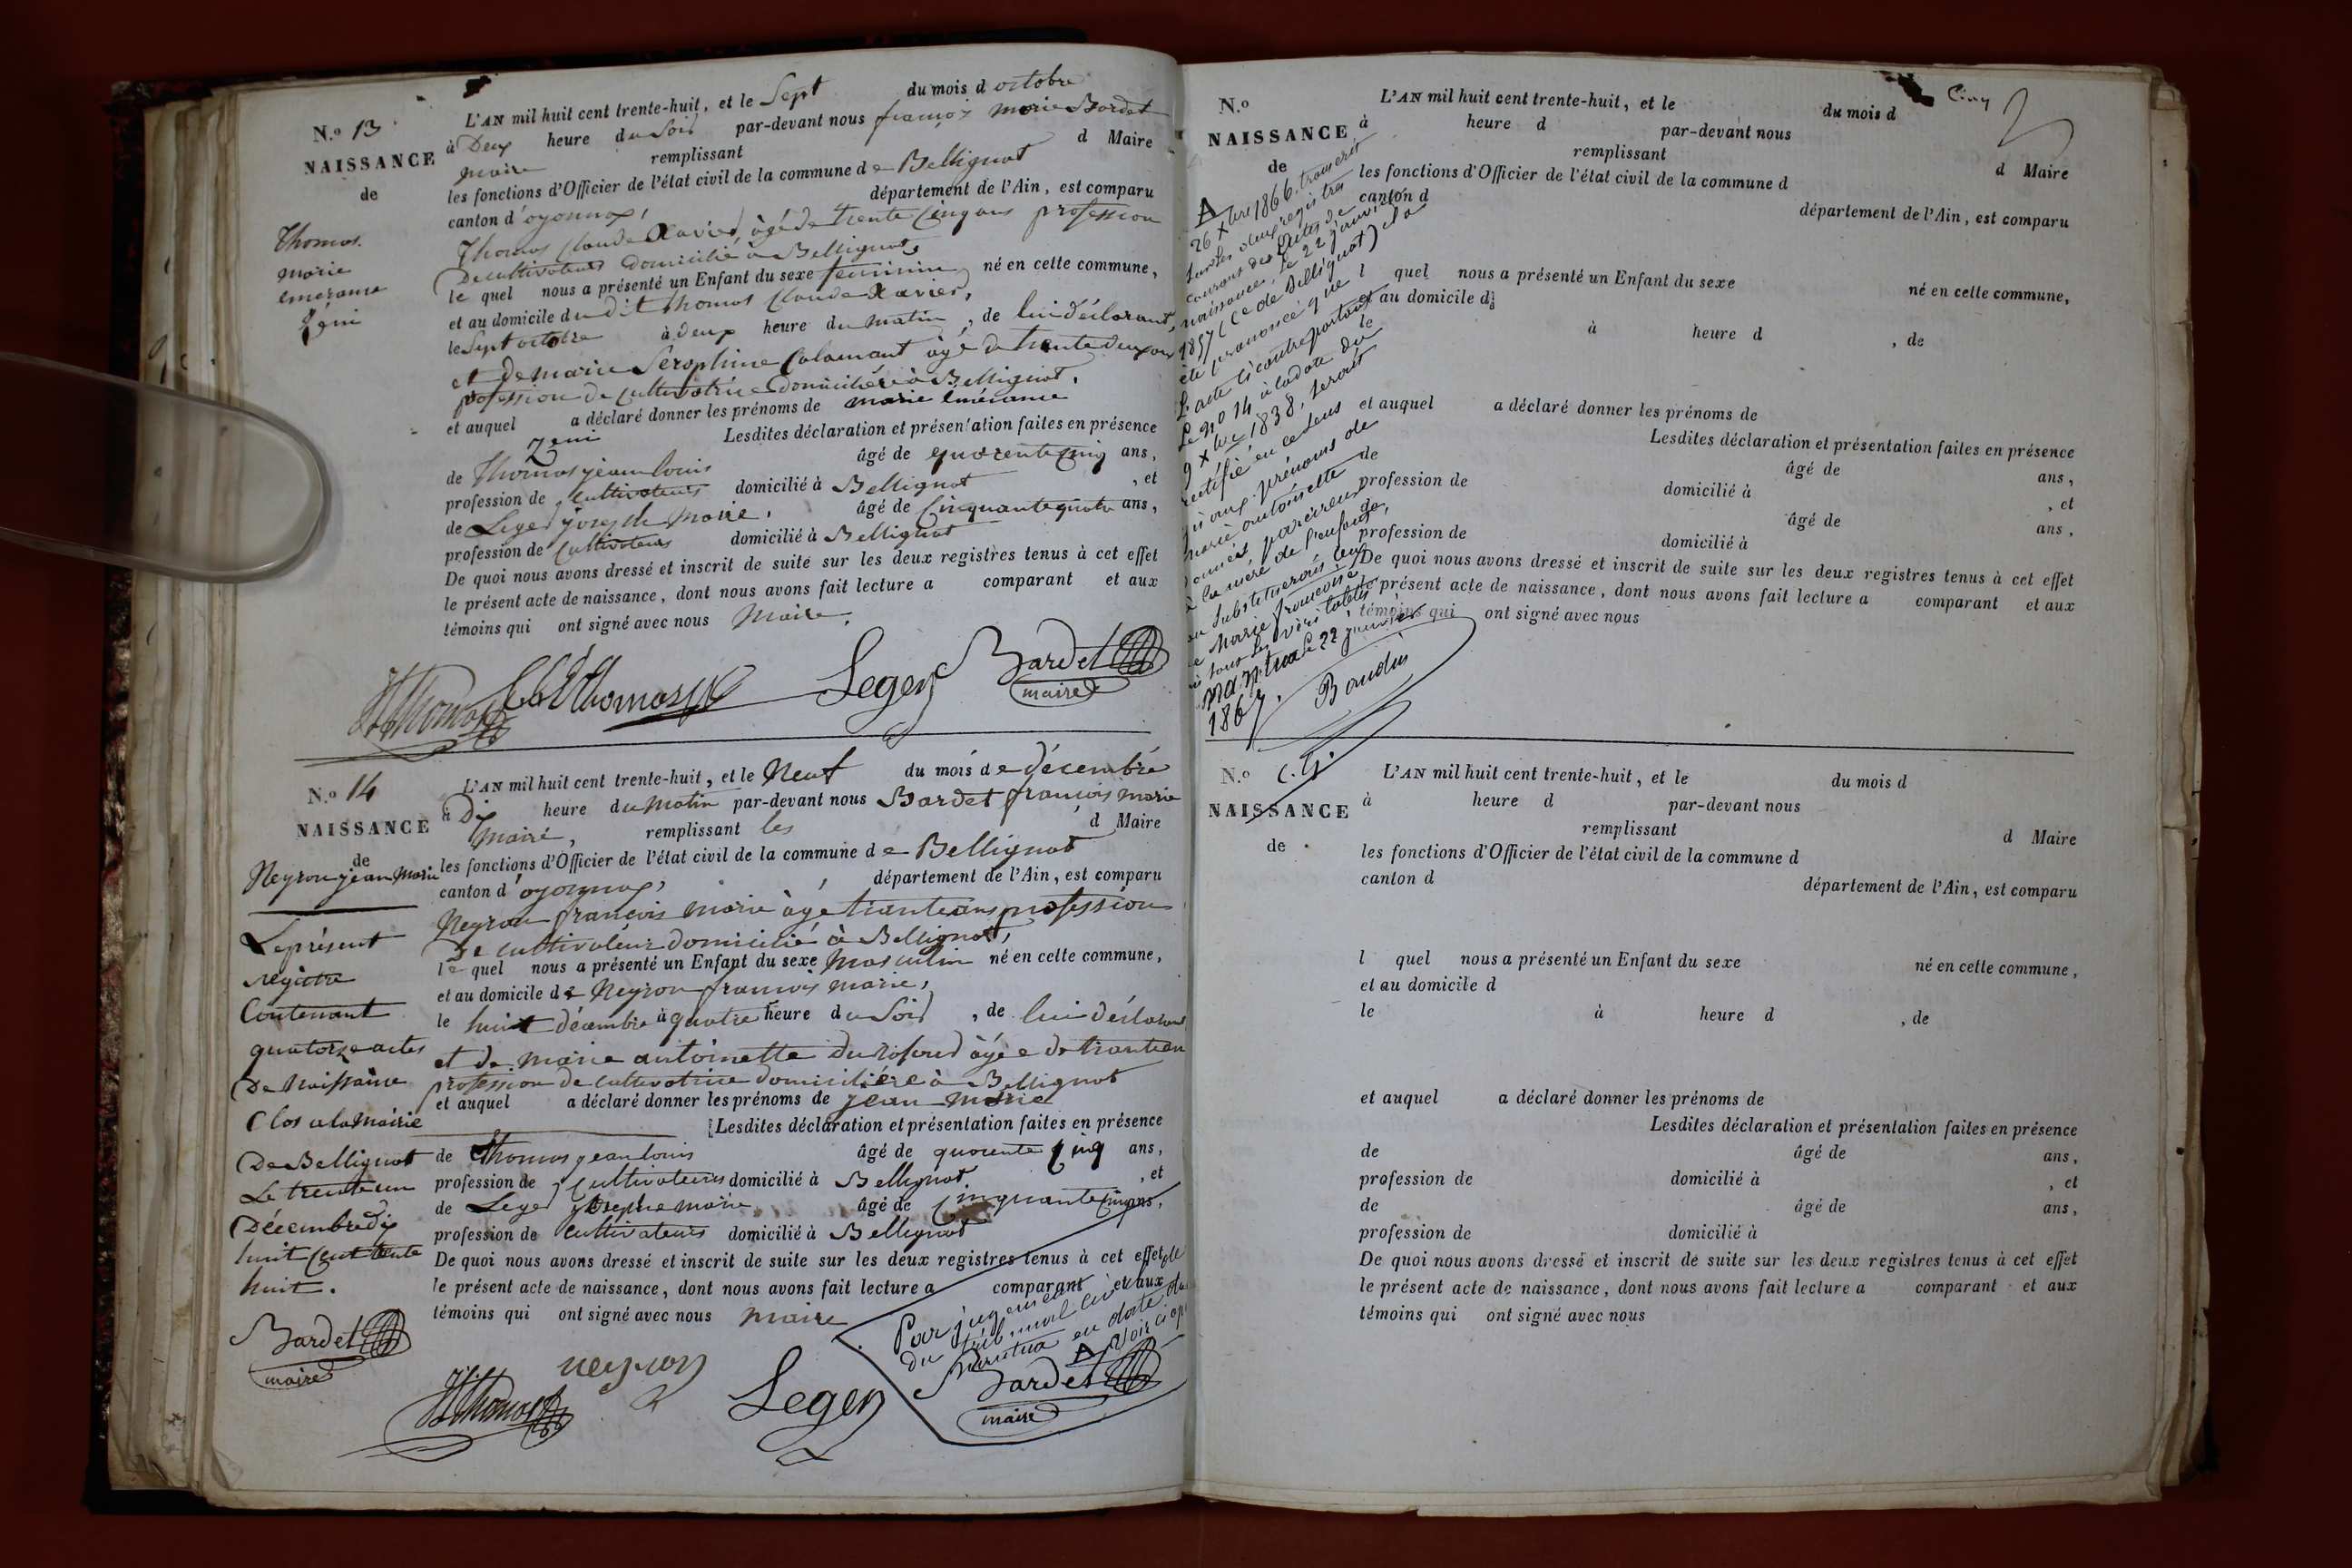 N.o 13
NAISSANCE
de
Thomas
marie
emerance
Zéni
L'AN mil huit cent trente-huit, et le Sept du mois d octobre
à Deux heure du Soir par-devant nous françois marie Bardet
maire remplissant d Maire
les fonctions d'Officier de l'état civil de la commune de Bellignat
canton d'oyonnax, département de l'Ain, est comparu
Thomas Claude Xavier, âgé de trente Cinq ans profession
De cultivateur domicilié à Bellignat,
le quel nous a présenté un Enfant du sexe féminin né en cette commune,
et au domicile du dit Thomas Claude Xavier,
le Sept octobre à deux heure du matin, de lui déclarant,
et De marie Séraphine Calamant âgé de trente deux ans
profession de Cultivatrice Domiciliée à Bellignat.
et auquel a déclaré donner les prénoms de marie emérance
Zeni Lesdites déclaration et présentation faites en présence
de Thomas jean louis âgé de quarente cinq ans,
profession de Cultivateur domicilié à Bellignat, et
de Leger joseph Marie, âgé de Cinquante quatre ans,
profession de Cultivateur domicilié à Bellignat
De quoi nous avons dressé et inscrit de suite sur les deux registres tenus à cet effet
le présent acte de naissance, dont nous avons fait lecture a comparant et aux
témoins qui ont signé avec nous Maire.
JL Thomas Cl X Thomas Leger Bardet
maire
N.o 14
NAISSANCE
de
Neyron jean Marie
L'AN mil huit cent trente-huit, et le Neuf du mois de décembre
à Dix heure du matin par-devant nous Bardet françois marie
Maire, remplissant les d Maire
les fonctions d'Officier de l'état civil de la commune de Bellignat
canton d'oyonnax, département de l'Ain, est comparu
Neyron françois marie âgé trente ans profession
De cultivateur domicilié à Bellignat,
le quel nous a présenté un Enfant du sexe Masculin né en cette commune,
et au domicile de Neyron francois marie,
le huit décembre à quatre heure du Soir, de lui déclarant
et de marie antoinette âgée de trente an
profession de cultivatrice domiciliére à Bellignat
et auquel a déclaré donner les prénoms de jean marie
Lesdites déclaration et présentation faites en présence
de Thomas jean louis âgé de quarente cinq ans,
profession de Cultivateur domicilié à Bellignat, et
de Leger joseph marie âgé de Cinquante Cinq ans,
profession de Cultivateur domicilié à Bellignat
De quoi nous avons dressé et inscrit de suite sur les deux registres tenus à cet effet
le présent acte de naissance, dont nous avons fait lecture a comparant et aux
témoins qui ont signé avec nous maire
Le présent
registre
Contenant
quatorze actes
De Naissance
Clos a la Mairie
De Bellignat
Le trente un
Décembre dix
huit Cent trente
huit.
Bardet
maire
Par jugement
du tribunal civil de
Nantua en date du
A Voir ci après
neyron
JL Thomas Leger Bardet
maire
Cinq
A
26 Xbre 1866, transcrit
sur les deux registres
courans des Actes de
naissance, le 22 janvier
1867 (Ce de Bellignat) il a
été prononcé que
L'acte ci contre portant
Le no 14 à la date du
9 Xbre 1838, serait
rectifié en ce sens
qu'aux prénoms de
Marie antoinette
donnés par erreur
à la mère de l'enfant,
on substituerait ceux
de Marie françoise
Nantua le 22 janvier
1867.
Baudin
C. G.
N.o
NAISSANCE
de
L'AN mil huit cent trente-huit, et le du mois d
à heure d par-devant nous
remplissant d Maire
les fonctions d'Officier de l'état civil de la commune d
canton d département de l'Ain, est comparu
l quel nous a présenté un Enfant du sexe né en cette commune,
et au domicile d
le à heure d , de
et auquel a déclaré donner les prénoms de
Lesdites déclaration et présentation faites en présence
de âgé de ans,
profession de domicilié à , et
de âgé de ans,
profession de domicilié à
De quoi nous avons dressé et inscrit de suite sur les deux registres tenus à cet effet
le présent acte de naissance, dont nous avons fait lecture a comparant et aux
témoins qui ont signé avec nous
N.o
NAISSANCE
de
L'AN mil huit cent trente-huit, et le du mois d
à heure d par-devant nous
remplissant d Maire
les fonctions d'Officier de l'état civil de la commune d
canton d département de l'Ain, est comparu
l quel nous a présenté un Enfant du sexe né en cette commune,
et au domicile d
le à heure d , de
et auquel a déclaré donner les prénoms de
Lesdites déclaration et présentation faites en présence
de âgé de ans,
profession de domicilié à , et
de âgé de ans,
profession de domicilié à
De quoi nous avons dressé et inscrit de suite sur les deux registres tenus à cet effet
le présent acte de naissance, dont nous avons fait lecture a comparant et aux
témoins qui ont signé avec nous